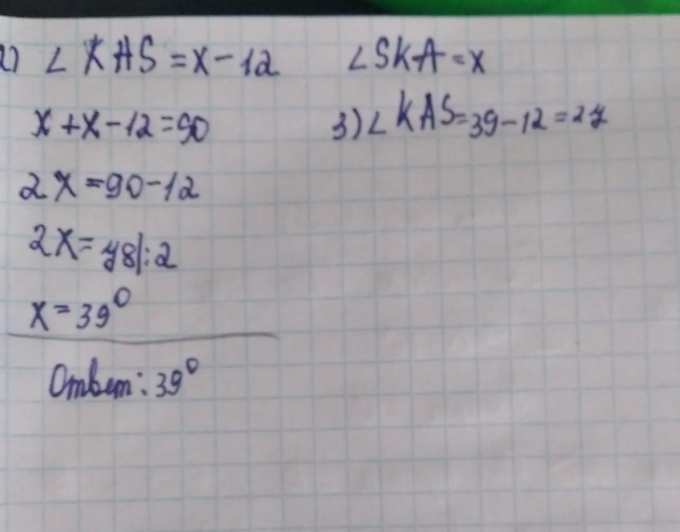 2) ∠KAS = x - 12 ∠SKA = x
x + x - 12 = 90 3) ∠KAS = 39 - 12 = 27
2x = 90 - 12
2x = 78 |:2
x = 39°
Ответ: 39°